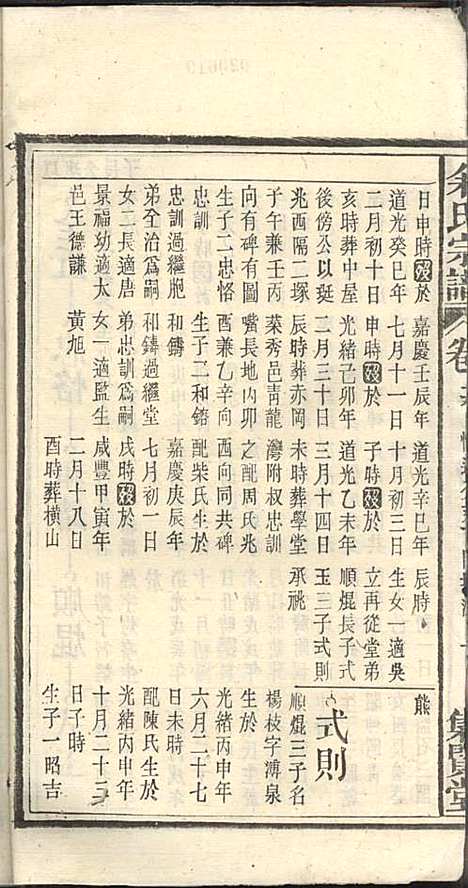 余氏宗譜
卷
集賢堂
日申時歿於
道光癸巳年
二月初十日
亥時葬中屋
後傍公以珽
兆西隔二塚
子午兼壬丙
向有碑有圖
生子二忠恪
忠訓
忠訓過繼胞
弟全治爲嗣
女二長適唐
景福幼適太
邑王德謙
嘉慶壬辰年
七月十一日
申時歿於
光緒己卯年
二月三十日
辰時葬赤岡
葉秀邑靑龍
嘴長地內卯
酉兼乙辛向
生子二和鎔
和鑄
和鑄過繼堂
弟忠訓爲嗣
女一適監生
黃旭
道光辛巳年
十月初三日
子時歿於
道光乙未年
三月十四日
未時葬學堂
灣附叔忠訓
之配周氏兆
西向同共碑
配柴氏生於
嘉慶庚辰年
七月初一日
戌時歿於
咸豐甲寅年
二月十八日
酉時葬橫山
辰時
生女一適吳
立再從堂弟
順焜長子式
玉三子式則
承祧
熊
式則
順焜三子名
楊枝字溥泉
生於
光緒丙申年
六月二十七
日未時
配陳氏生於
光緒丙申年
十月二十三
日子時
生子一昭吉